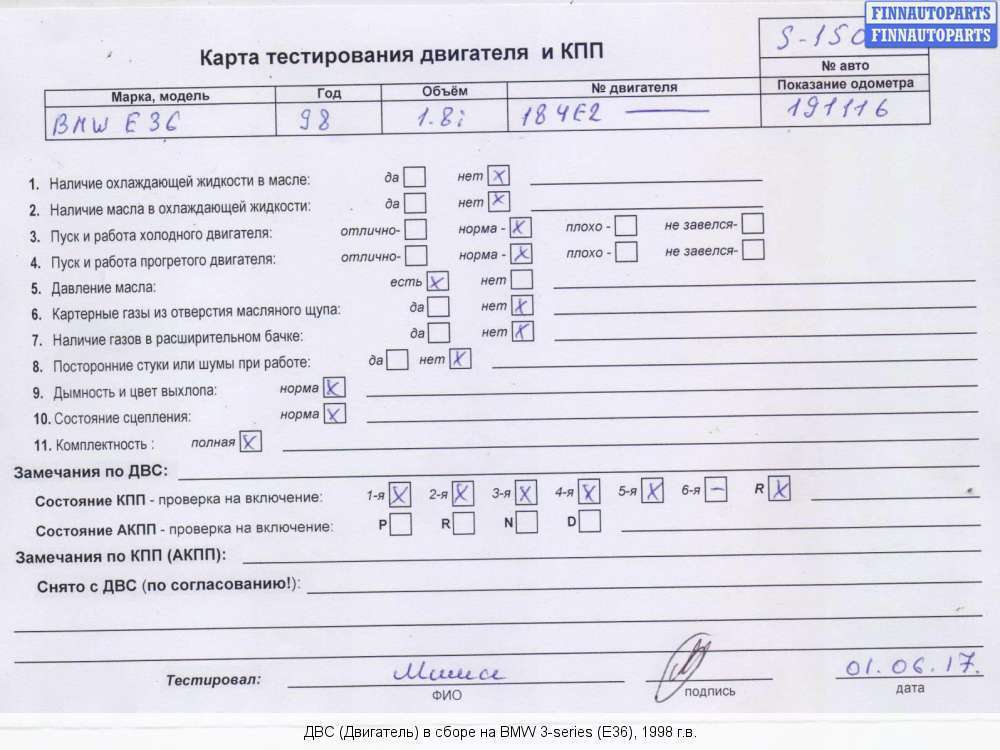 FINNAUTOPARTS
FINNAUTOPARTS
S-150
Карта тестирования двигателя и КПП
№ авто
Марка, модель Год Объём № двигателя Показание одометра
BMW E36 98 1.8i 184E2 191116
1. Наличие охлаждающей жидкости в масле: да нет x
2. Наличие масла в охлаждающей жидкости: да нет x
3. Пуск и работа холодного двигателя: отлично- норма - x плохо - не завелся-
4. Пуск и работа прогретого двигателя: отлично- норма - x плохо - не завелся-
5. Давление масла: есть x нет
6. Картерные газы из отверстия масляного щупа: да нет x
7. Наличие газов в расширительном бачке: да нет x
8. Посторонние стуки или шумы при работе: да нет x
9. Дымность и цвет выхлопа: норма x
10. Состояние сцепления: норма x
11. Комплектность : полная x
Замечания по ДВС:
Состояние КПП - проверка на включение: 1-я x 2-я x 3-я x 4-я x 5-я x 6-я – R x
Состояние АКПП - проверка на включение: P R N D
Замечания по КПП (АКПП):
Снято с ДВС (по согласованию!):
Тестировал: 01.06.17.
ФИО подпись дата
ДВС (Двигатель) в сборе на BMW 3-series (E36), 1998 г.в.